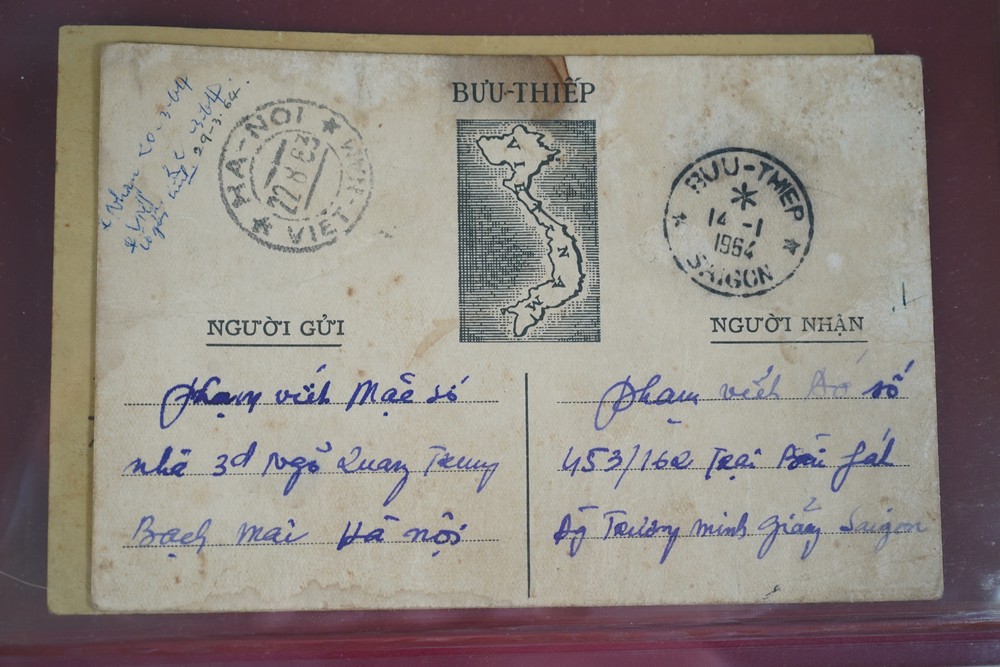 BƯU-THIẾP
HA-NOI
22 8 63
VIỆT-NAM
Nhận 20-3-64
29-3-64
VIETNAM
BUU-THIEP
14 -1
1964
SAIGON
NGƯỜI GỬI
Phạm viết Mặc số
nhà 3d Ngõ Quang Trung
Bạch mai Hà nội
NGƯỜI NHẬN
Phạm viết số
453/162 Trại
Trương minh Giảng Saigon